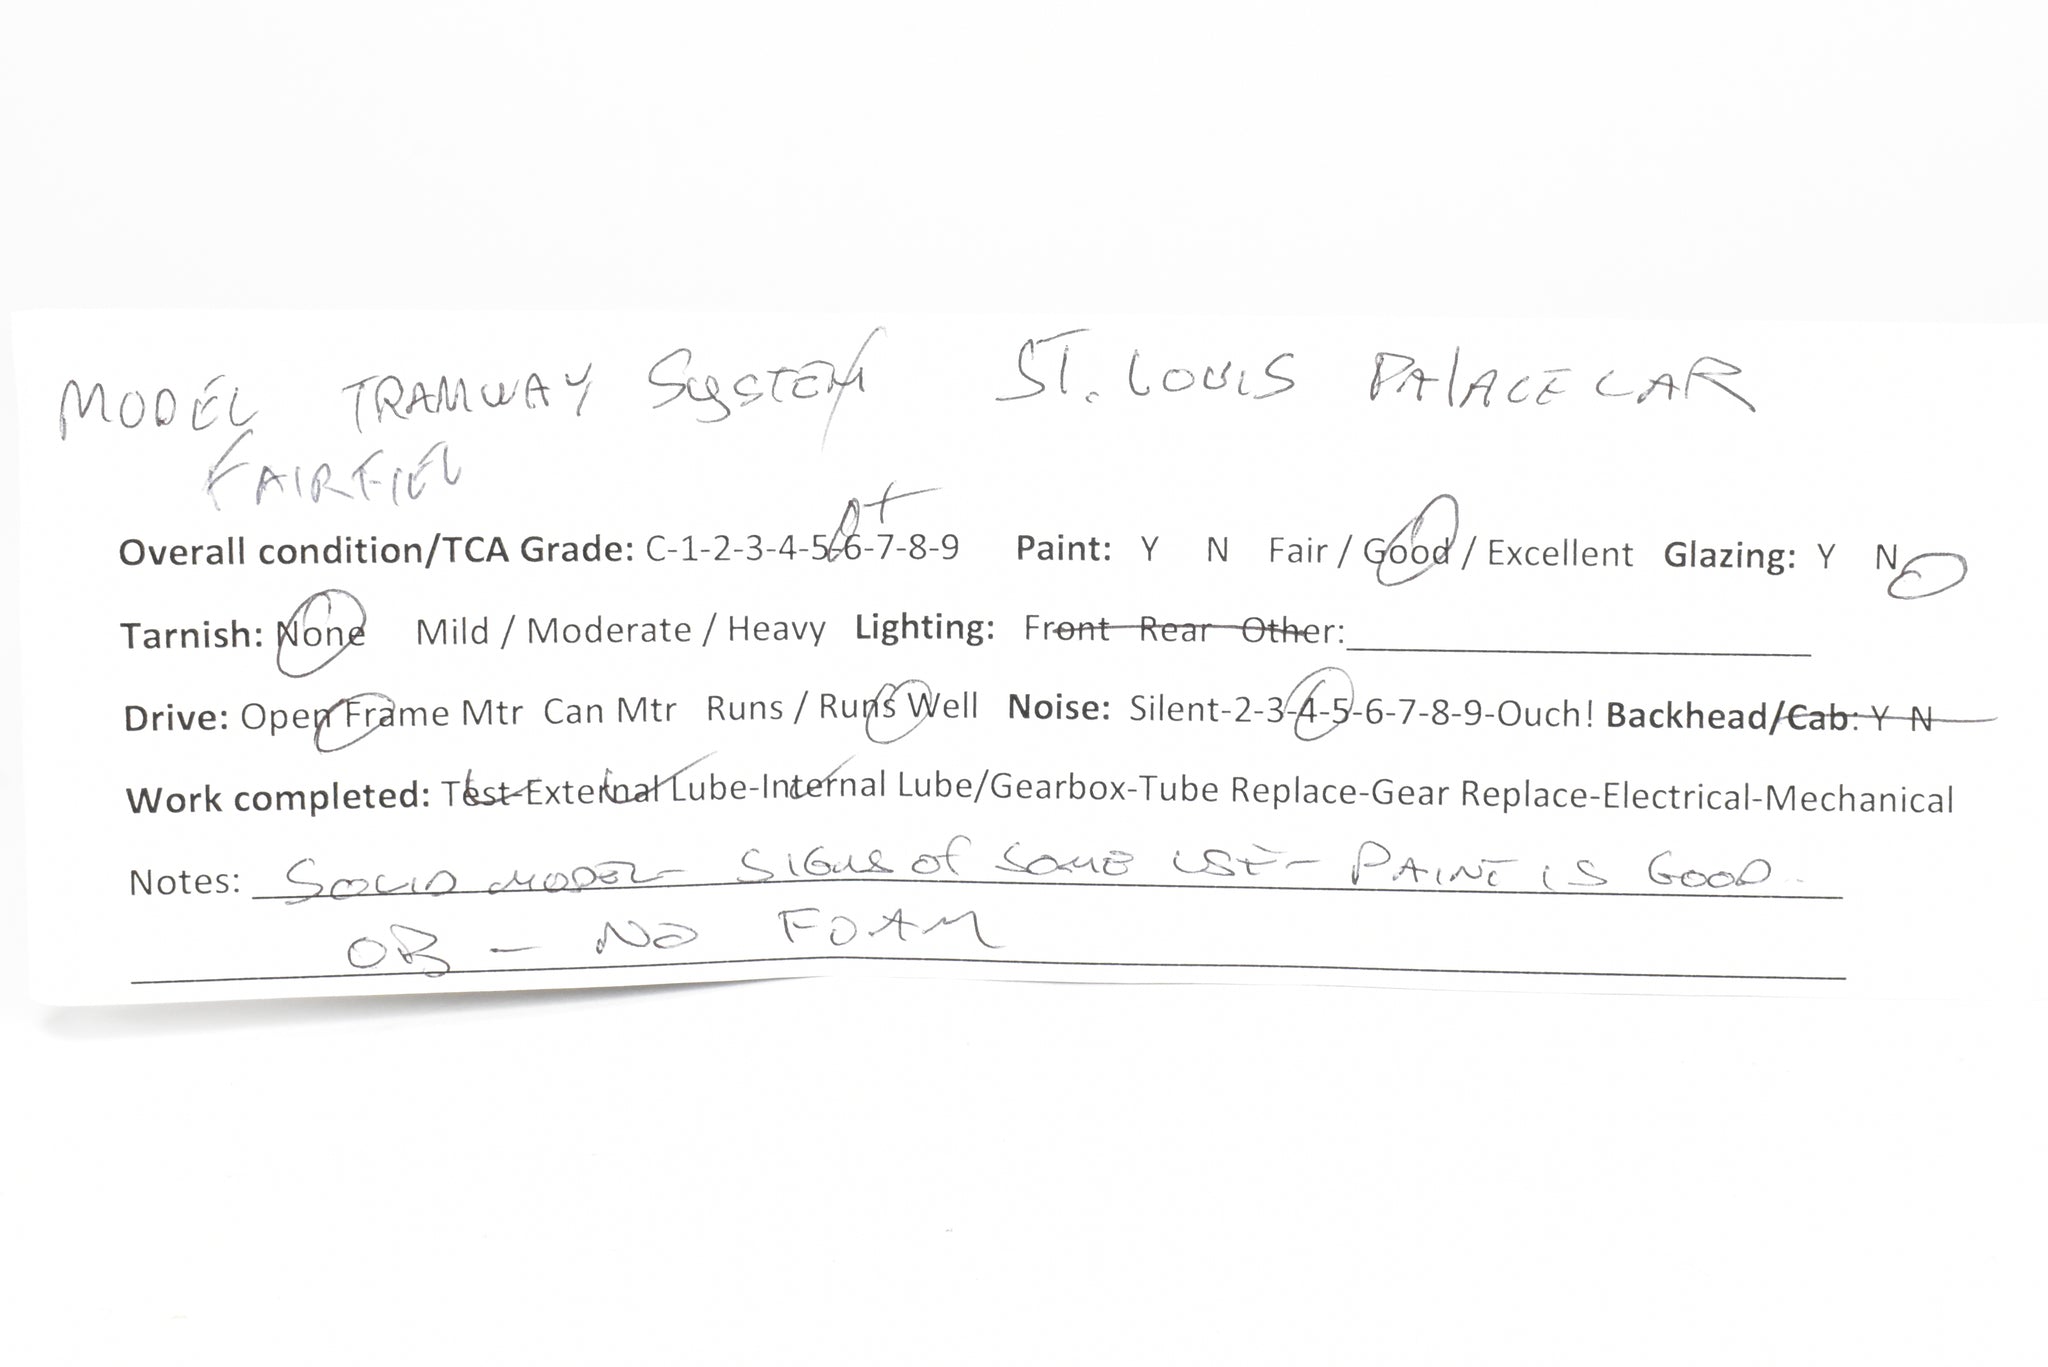 MODEL TRAMWAY SYSTEM ST. LOUIS PALACE CAR
FAIRFIEL
Overall condition/TCA Grade: C-1-2-3-4-5-6-7-8-9 Paint: Y N Fair / Good / Excellent Glazing: Y N
Tarnish: None Mild / Moderate / Heavy Lighting: Front Rear Other:
Drive: Open Frame Mtr Can Mtr Runs / Runs Well Noise: Silent-2-3-4-5-6-7-8-9-Ouch! Backhead/Cab: Y N
Work completed: Test-External Lube-Internal Lube/Gearbox-Tube Replace-Gear Replace-Electrical-Mechanical
Notes: SOLID MODEL - SIGNS OF SOME USE - PAINT IS GOOD
OB - NO FOAM